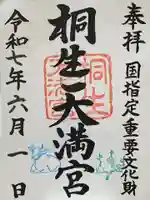 奉拝
国指定重要文化財
桐生天満宮
令和七年六月一日